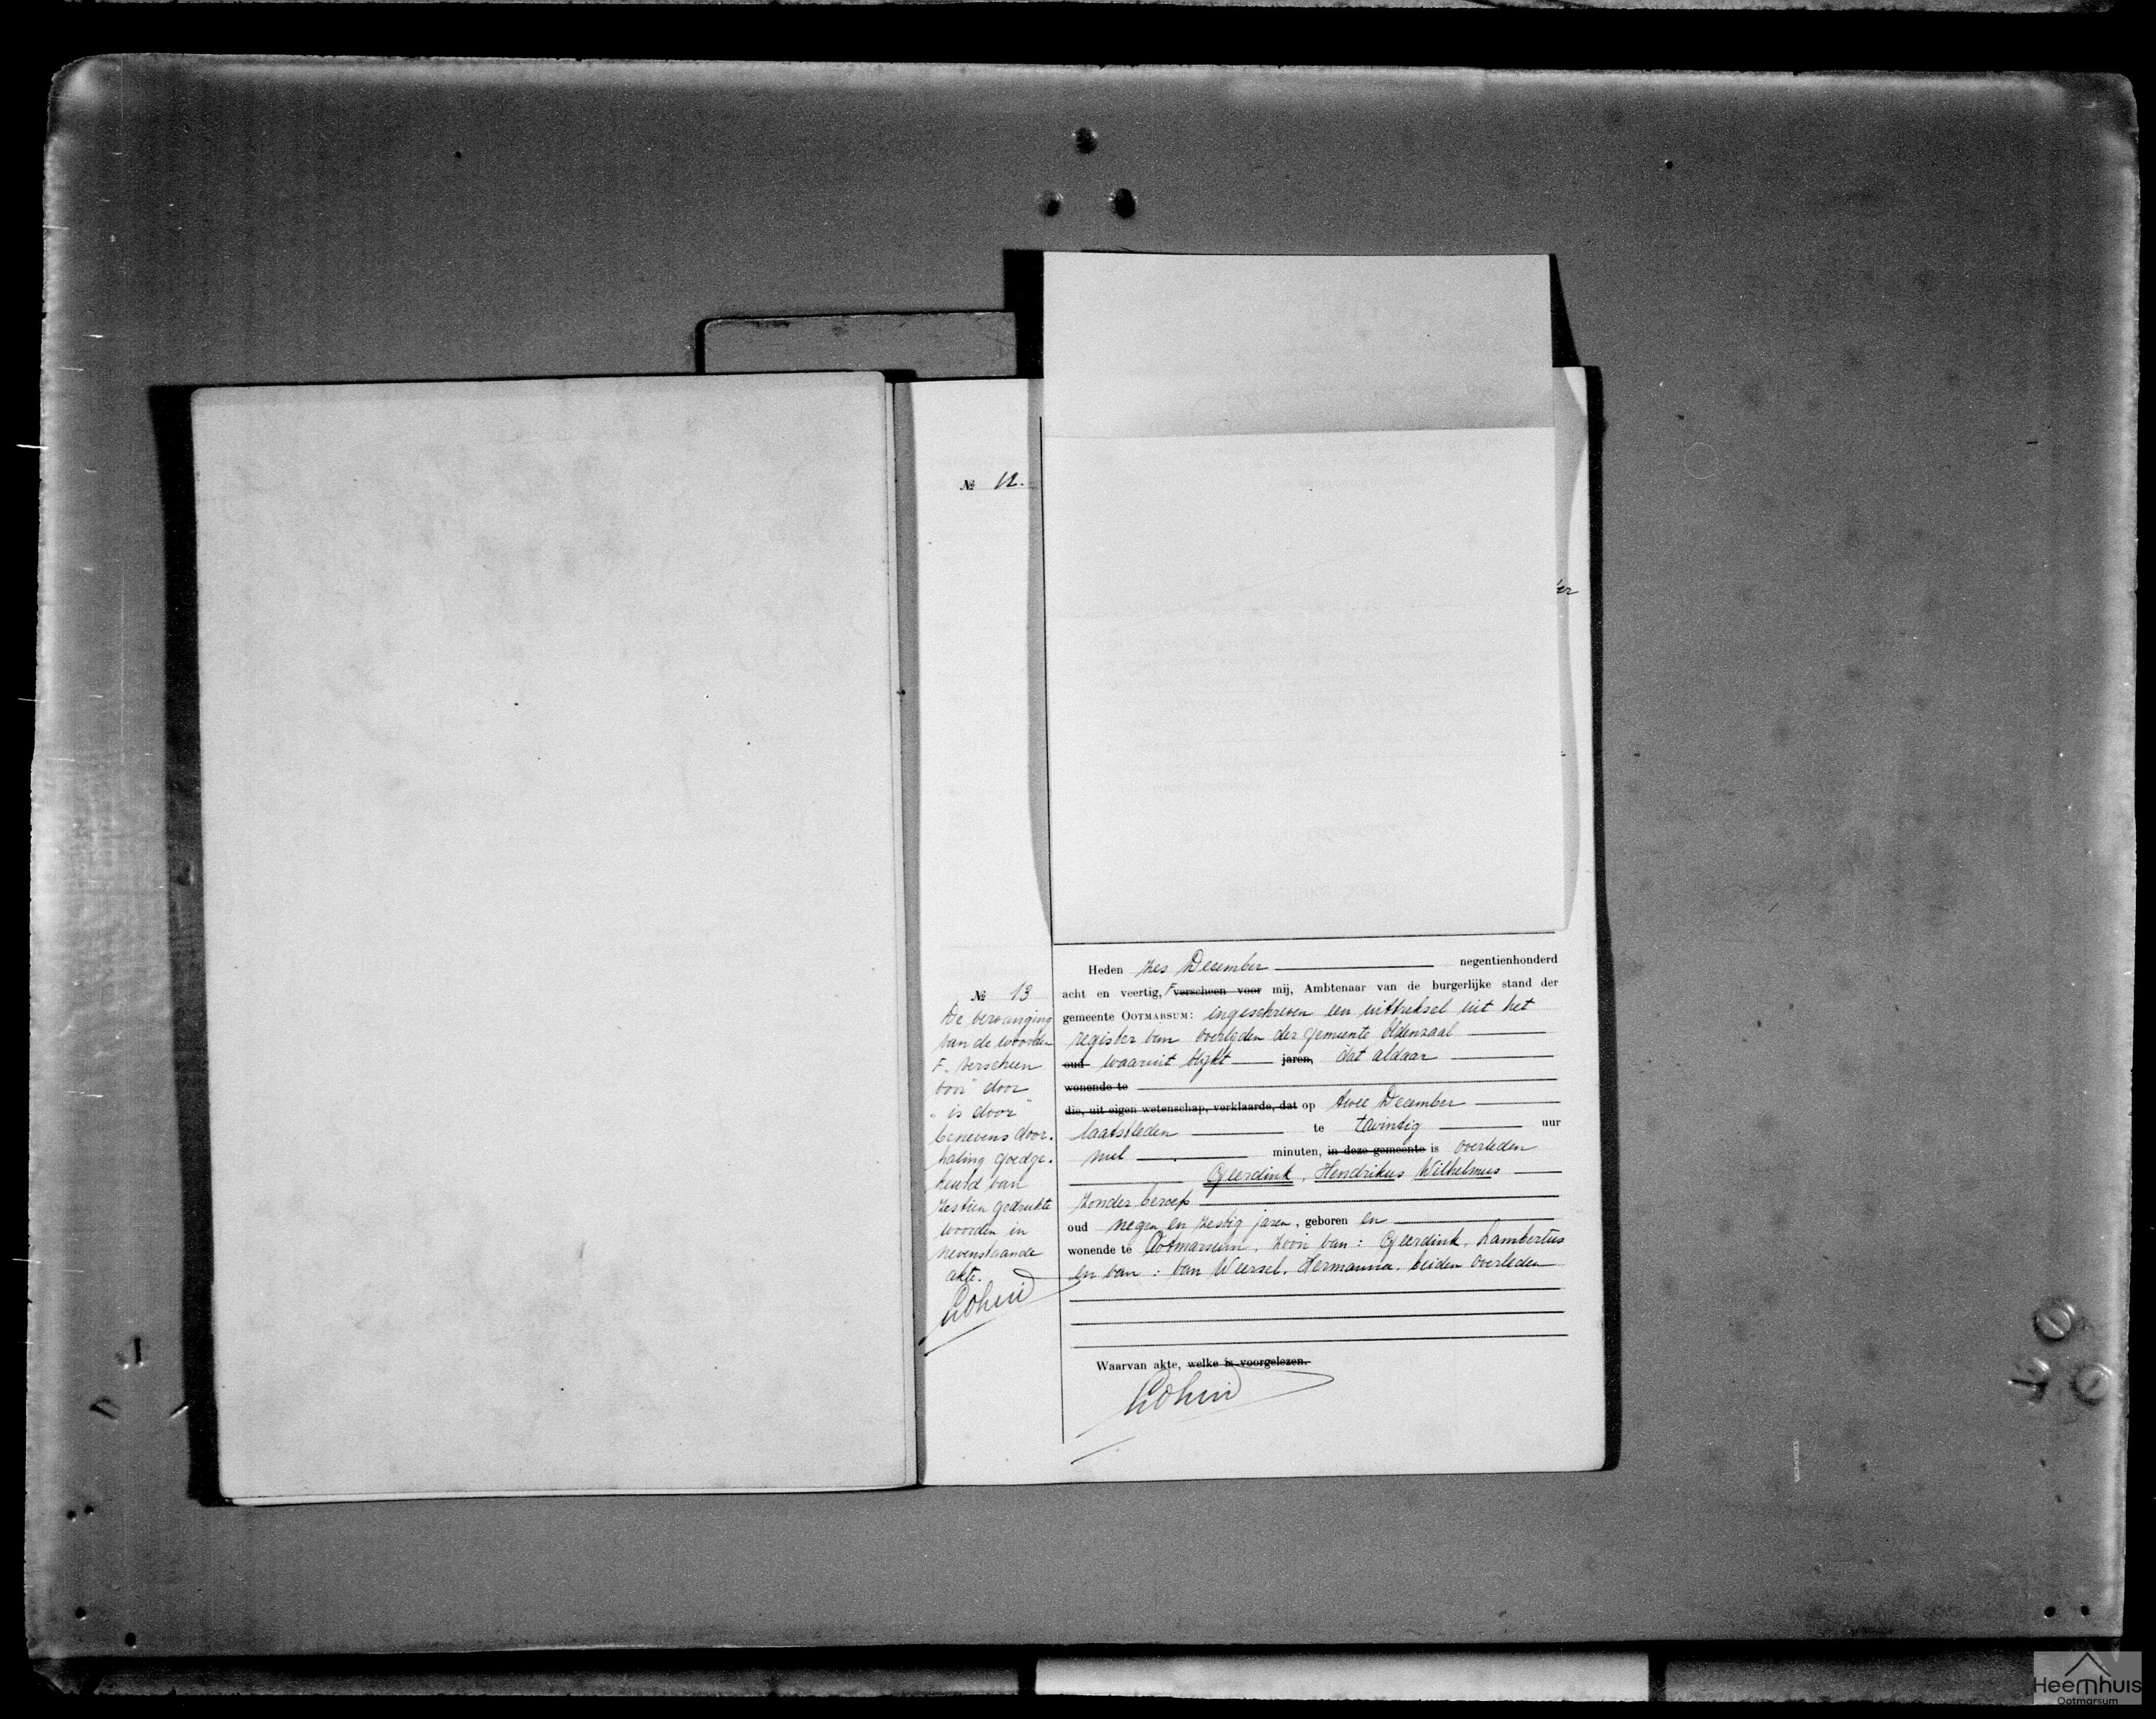 № 12.
№ 13
De vervanging
van de woorden
F „verscheen
voor" door
„is door"
benevens door-
haling goedge-
keurd van
zestien gedrukte
woorden in
nevenstaande
akte.
Heden zes December negentienhonderd
acht en veertig, F verscheen voor mij, Ambtenaar van de burgerlijke stand der
gemeente OOTMARSUM: ingeschreven een uittreksel uit het
register van overlijden der gemeente Oldenzaal
oud waaruit blijkt jaren, dat aldaar
wonende te
die, uit eigen wetenschap, verklaarde, dat op twee December
laatstleden te twintig uur
nul minuten, in deze gemeente is overleden
Geerdink, Hendrikus Wilhelmus
zonder beroep
oud negen en zestig jaren, geboren en
wonende te Ootmarsum, zoon van: Geerdink, Lambertus
en van: van Weersel, Hermanna, beiden overleden
Waarvan akte, welke is voorgelezen.
Heemhuis
Ootmarsum